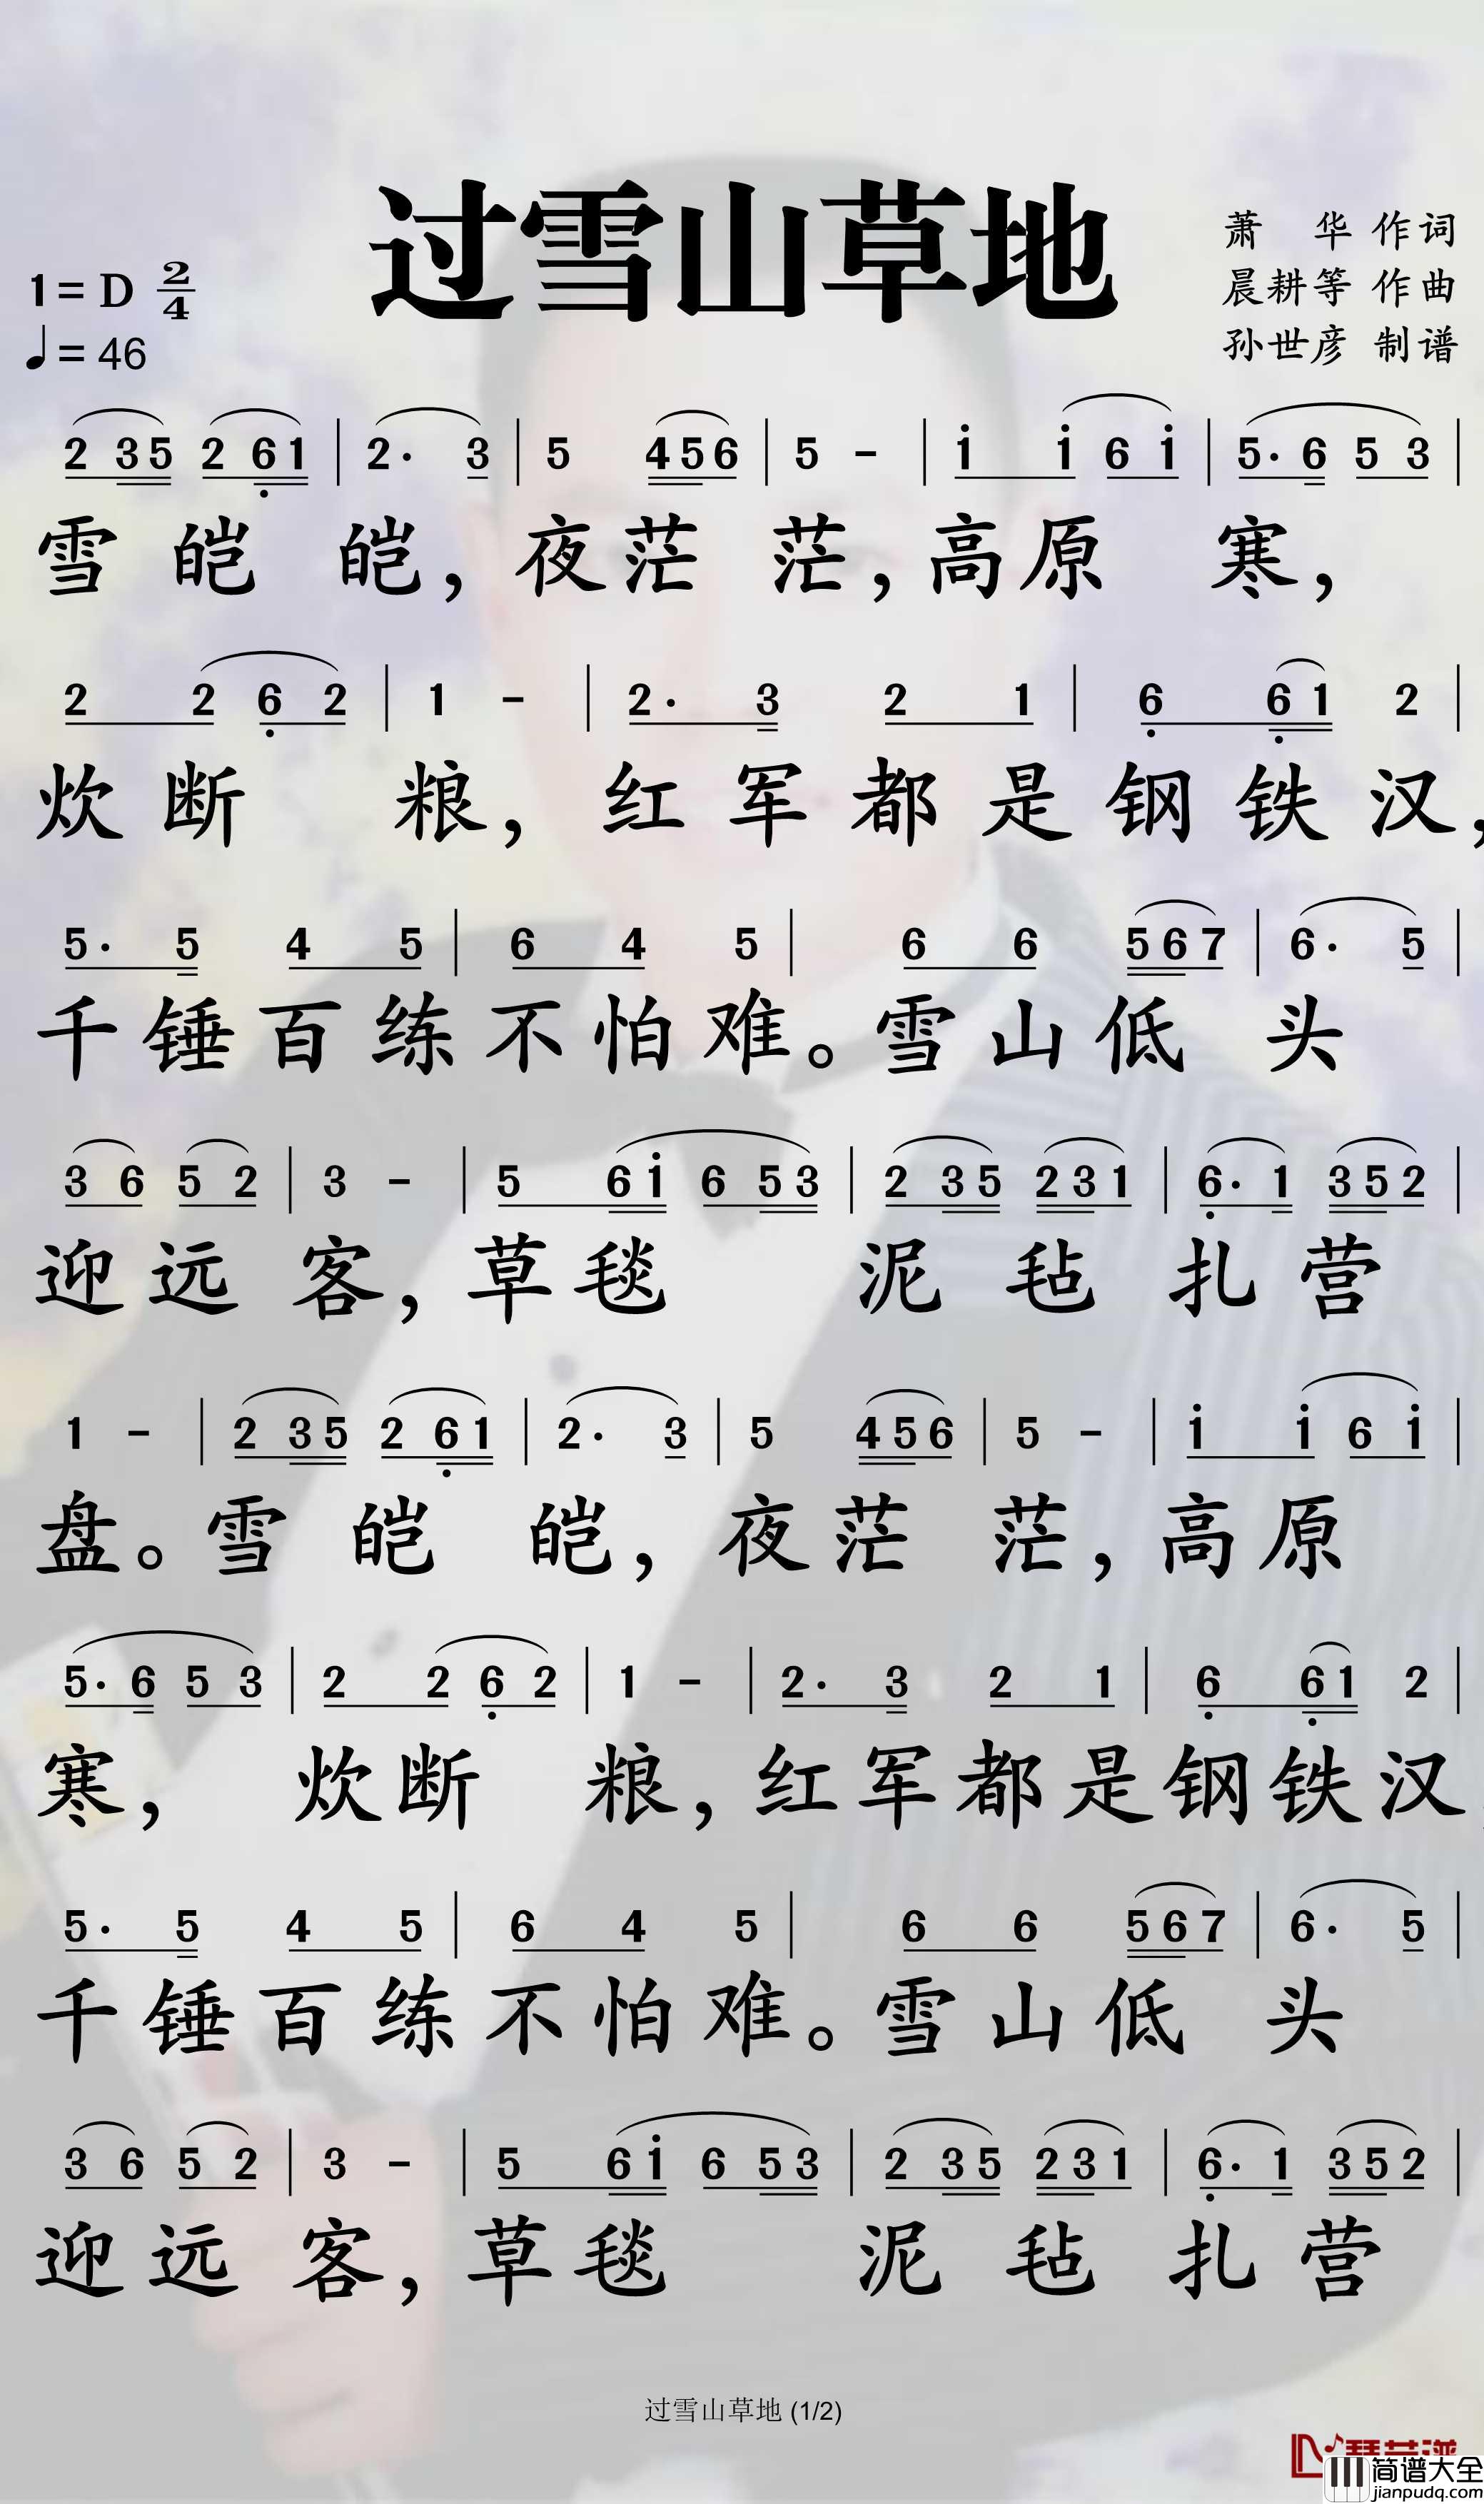 过雪山草地
萧 华 作词
晨耕等 作曲
孙世彦 制谱
1=D 2/4
♩=46
2 35 2 61 | 2· 3 | 5 456 | 5 - | i i 6 i | 5· 6 5 3 |
雪皑皑，夜茫茫，高原寒，
2 2 6 2 | 1 - | 2· 3 2 1 | 6 61 2 |
炊断粮，红军都是钢铁汉，
5· 5 4 5 | 6 4 5 | 6 6 567 | 6· 5 |
千锤百练不怕难。雪山低头
3 6 5 2 | 3 - | 5 6i 6 53 | 2 35 231 | 6· 1 352 |
迎远客，草毯泥毡扎营
1 - | 2 35 2 61 | 2· 3 | 5 456 | 5 - | i i 6 i |
盘。雪皑皑，夜茫茫，高原
5· 6 5 3 | 2 2 6 2 | 1 - | 2· 3 2 1 | 6 61 2 |
寒，炊断粮，红军都是钢铁汉，
5· 5 4 5 | 6 4 5 | 6 6 567 | 6· 5 |
千锤百练不怕难。雪山低头
3 6 5 2 | 3 - | 5 6i 6 53 | 2 35 231 | 6· 1 352 |
迎远客，草毯泥毡扎营
过雪山草地 (1/2)
简谱大全
jianpudq.com